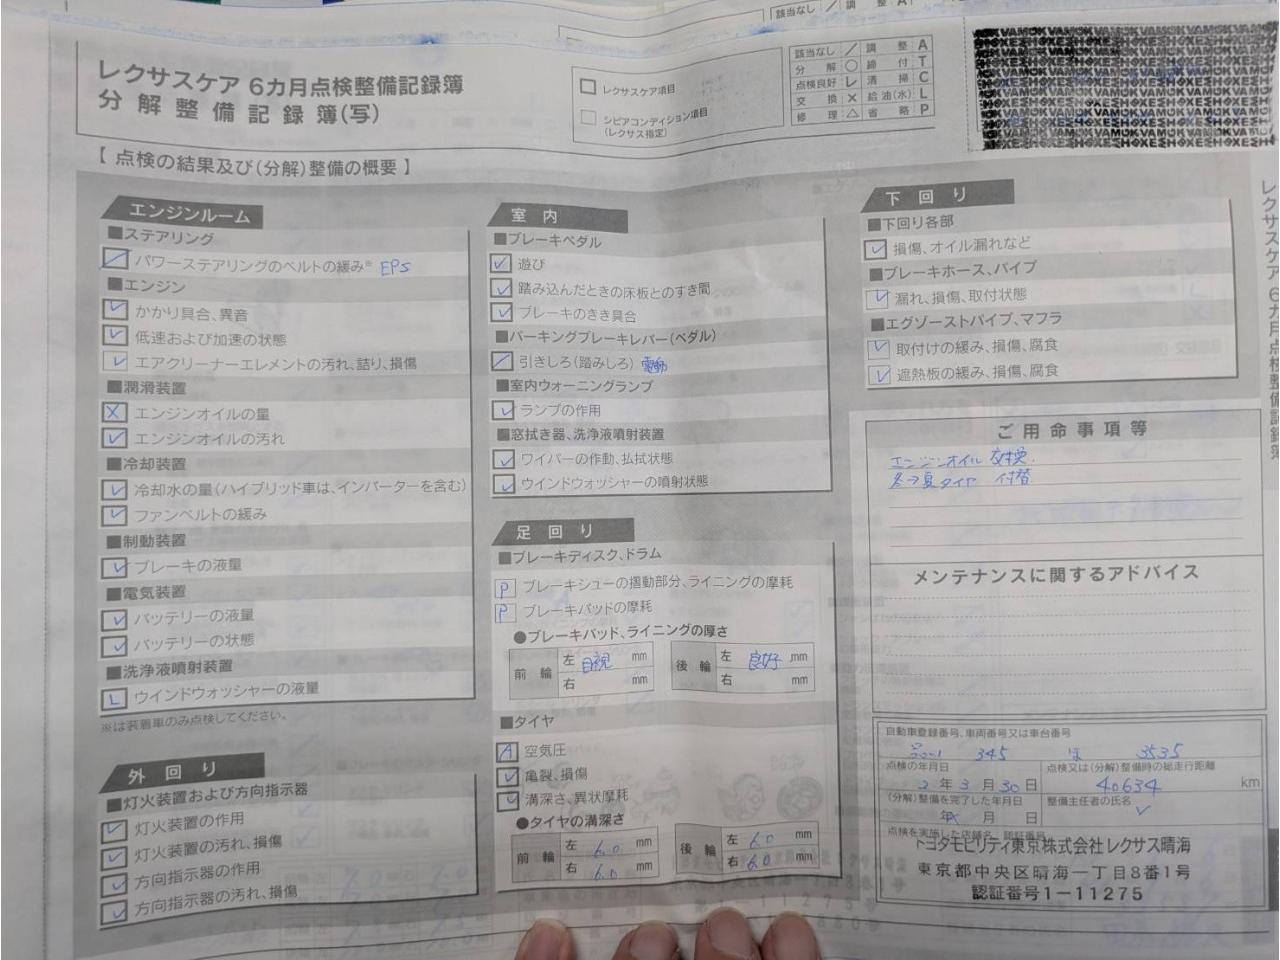 該当なし / 調整 A
レクサスケア 6カ月点検整備記録簿
分解整備記録簿(写)
レクサスケア項目
シビアコンディション項目
(レクサス指定)
該当なし / 調整 A
分解 ○ 締付 T
点検良好 レ 清掃 C
交換 × 給油(水) L
修理 △ 省略 P
【 点検の結果及び(分解)整備の概要 】
エンジンルーム
■ステアリング
パワーステアリングのベルトの緩み※ EPS
■エンジン
かかり具合、異音
低速および加速の状態
エアクリーナーエレメントの汚れ、詰り、損傷
■潤滑装置
X エンジンオイルの量
エンジンオイルの汚れ
■冷却装置
冷却水の量(ハイブリッド車は、インバーターを含む)
ファンベルトの緩み
■制動装置
ブレーキの液量
■電気装置
バッテリーの液量
バッテリーの状態
■洗浄液噴射装置
L ウインドウォッシャーの液量
※は装着車のみ点検してください。
外回り
■灯火装置および方向指示器
灯火装置の作用
灯火装置の汚れ、損傷
方向指示器の作用
方向指示器の汚れ、損傷
室内
■ブレーキペダル
遊び
踏み込んだときの床板とのすき間
ブレーキのきき具合
■パーキングブレーキレバー(ペダル)
引きしろ(踏みしろ) 電動
■室内ウォーニングランプ
ランプの作用
■窓拭き器、洗浄液噴射装置
ワイパーの作動、払拭状態
ウインドウォッシャーの噴射状態
足回り
■ブレーキディスク、ドラム
P ブレーキシューの摺動部分、ライニングの摩耗
P ブレーキパッドの摩耗
●ブレーキパッド、ライニングの厚さ
前輪 左 目視 mm 後輪 左 良好 mm
右 mm 右 mm
■タイヤ
A 空気圧
亀裂、損傷
溝深さ、異状摩耗
●タイヤの溝深さ
前輪 左 6.0 mm 後輪 左 6.0 mm
右 6.0 mm 右 6.0 mm
下回り
■下回り各部
損傷、オイル漏れなど
■ブレーキホース、パイプ
漏れ、損傷、取付状態
■エグゾーストパイプ、マフラ
取付けの緩み、損傷、腐食
遮熱板の緩み、損傷、腐食
ご用命事項等
エンジンオイル 交換.
冬→夏タイヤ 付替
メンテナンスに関するアドバイス
自動車登録番号、車両番号又は車台番号
345 ほ 3535
点検の年月日 点検又は(分解)整備時の総走行距離
2年3月30日 40634 km
(分解)整備を完了した年月日 整備主任者の氏名
年 月 日
点検を実施した店舗名、認証番号
トヨタモビリティ東京株式会社レクサス晴海
東京都中央区晴海一丁目8番1号
認証番号1-11275
レクサスケア6カ月点検整備記録簿